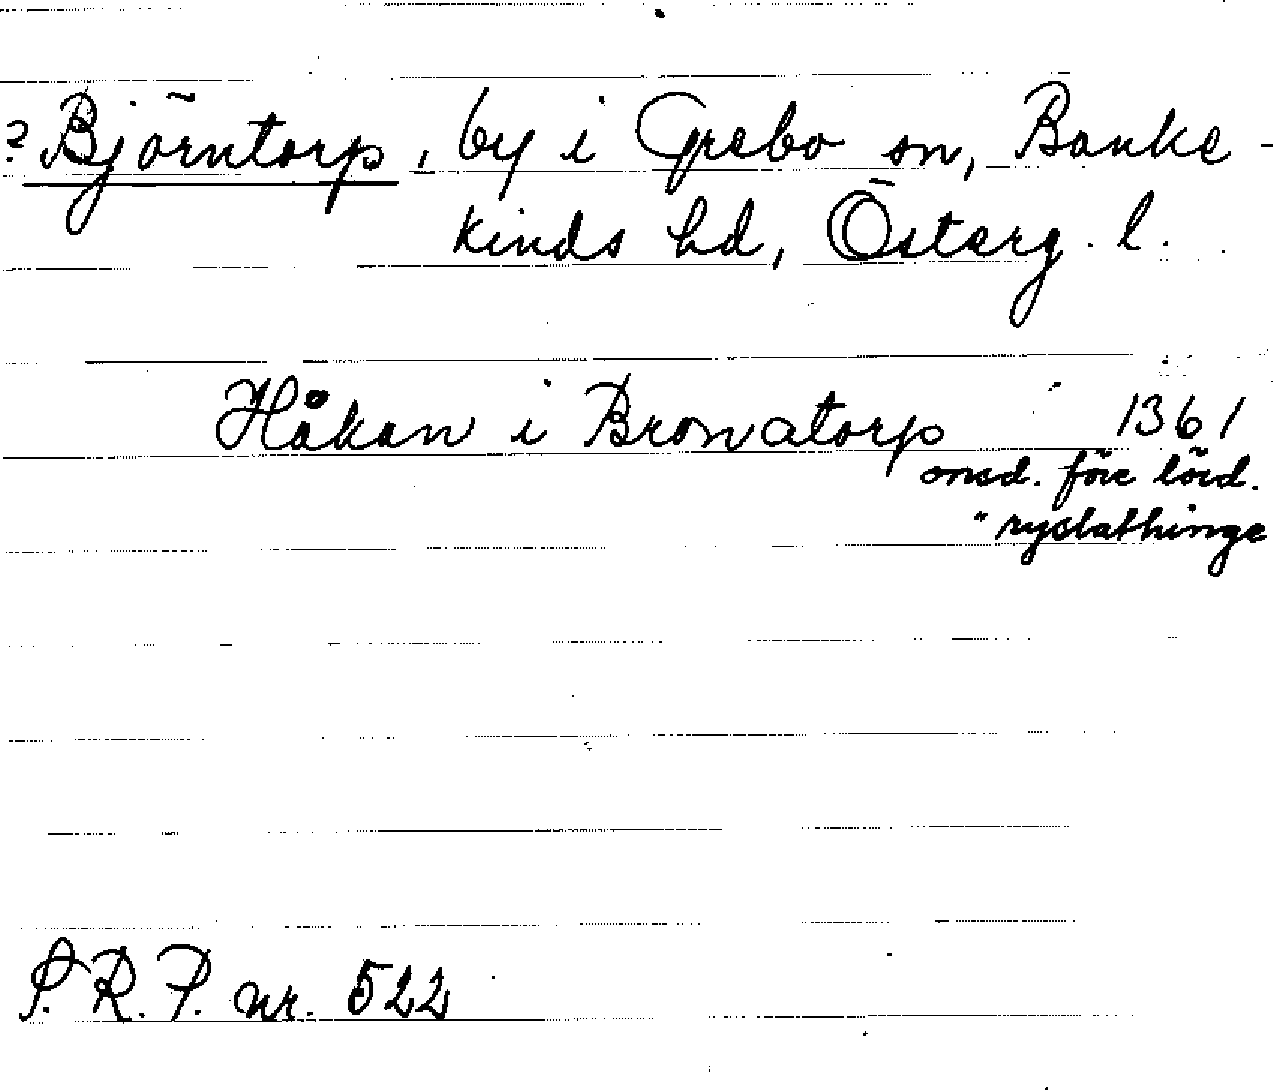 ? Björntorp, by i Grebo sn, Banke-
kinds hd, Österg. l.
Håkan i Bronatorp 1361
onsd. före lörd.
"ryslathinge
S.R.P. nr. 522